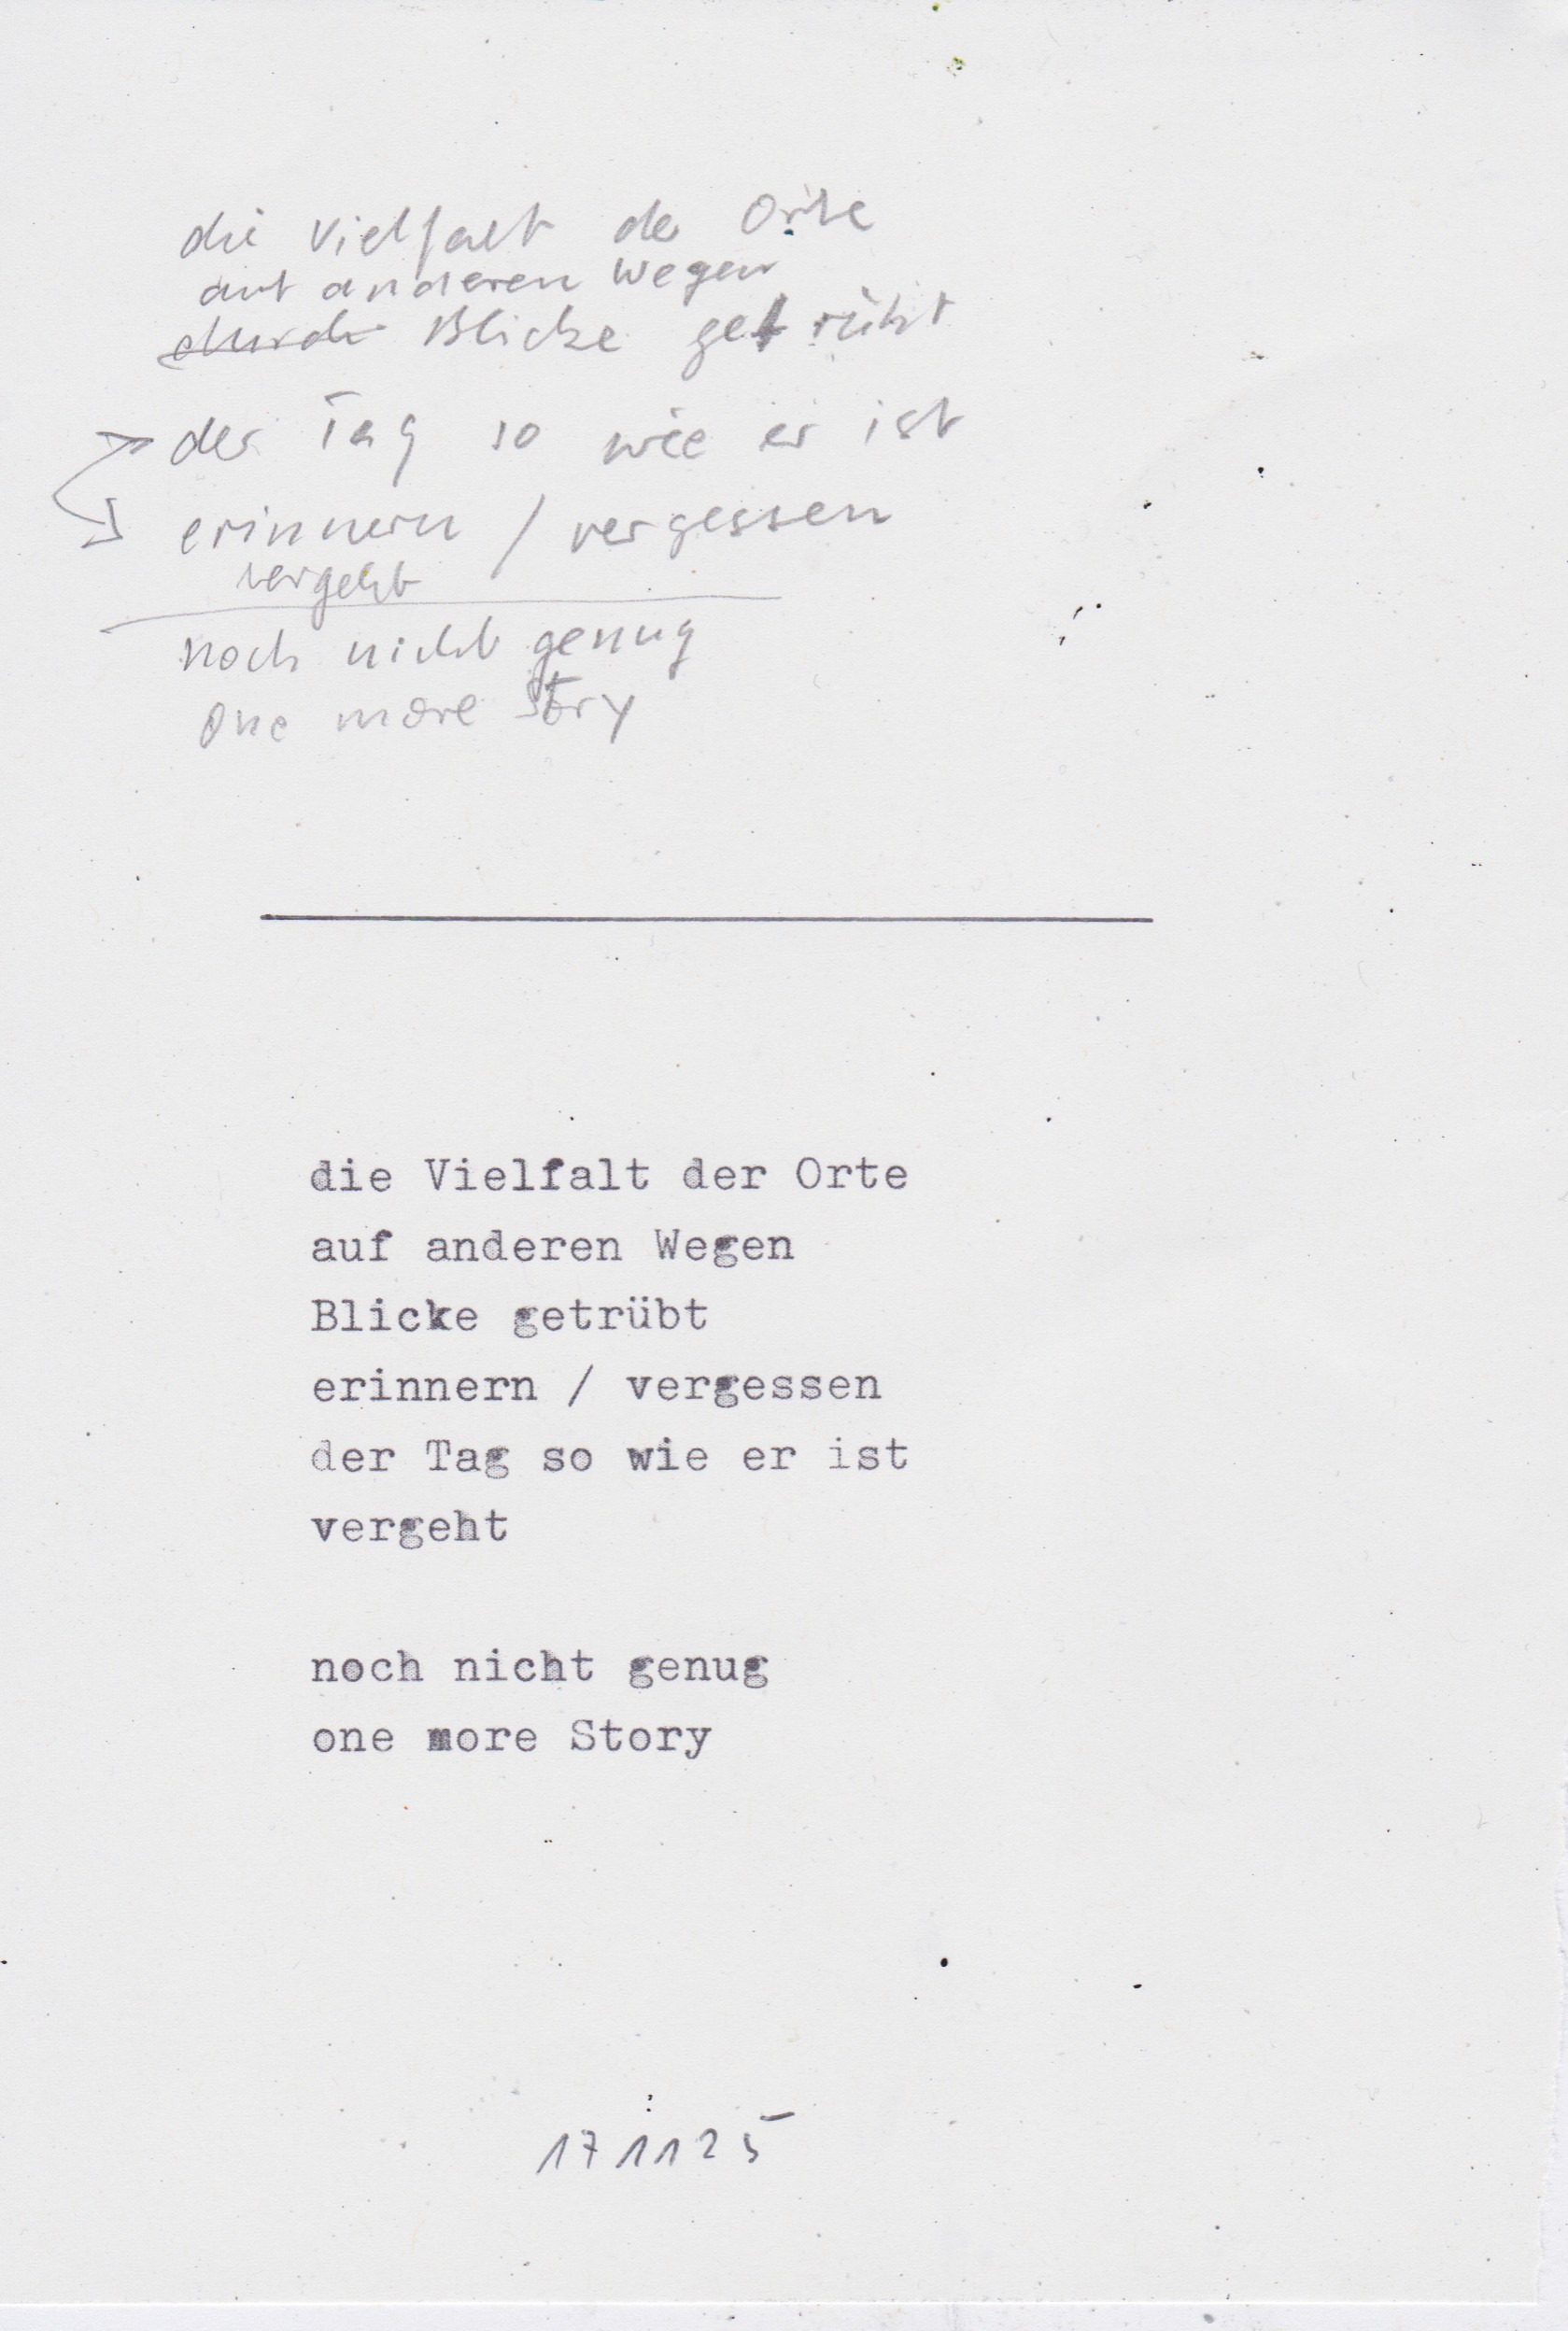 die Vielfalt der Orte
auf anderen Wegen
durch Blicke getrübt
der Tag so wie er ist
erinnern / vergessen
vergeht
noch nicht genug
One more Story
die Vielfalt der Orte
auf anderen Wegen
Blicke getrübt
erinnern / vergessen
der Tag so wie er ist
vergeht
noch nicht genug
one more Story
171125